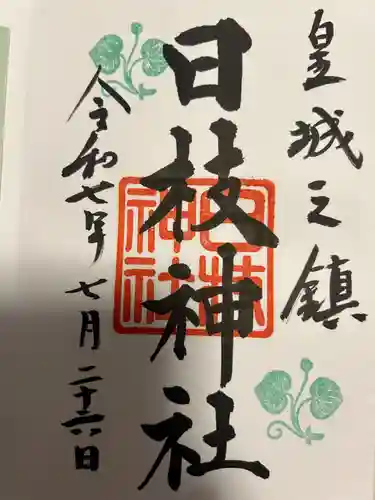 皇城之鎮
日枝神社
日枝
神社
令和七年 七月二十六日